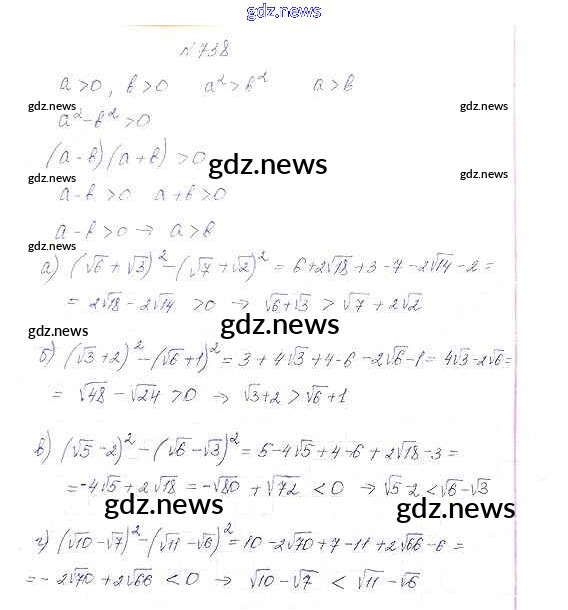 gdz.news
№738
a>0, b>0 a²>b² a>b
gdz.news gdz.news
a²-b²>0
gdz.news
(a-b)(a+b)>0
gdz.news
gdz.news gdz.news
a-b>0 a+b>0
a-b>0 → a>b
gdz.news
а) (√6+√3)²-(√7+√2)²=6+2√18+3-7-2√14-2=
=2√18-2√14>0 → √6+√3>√7+2√2
gdz.news
gdz.news
б) (√3+2)²-(√6+1)²=3+4√3+4-6-2√6-1=4√3-2√6=
=√48-√24>0 → √3+2>√6+1
в) (√5-2)²-(√6-√3)²=5-4√5+4-6+2√18-3=
=-4√5+2√18=-√80+√72<0 → √5-2<√6-√3
gdz.news gdz.news
г) (√10-√7)²-(√11-√6)²=10-2√70+7-11+2√66-6=
=-2√70+2√66<0 → √10-√7<√11-√6
gdz.news gdz.news